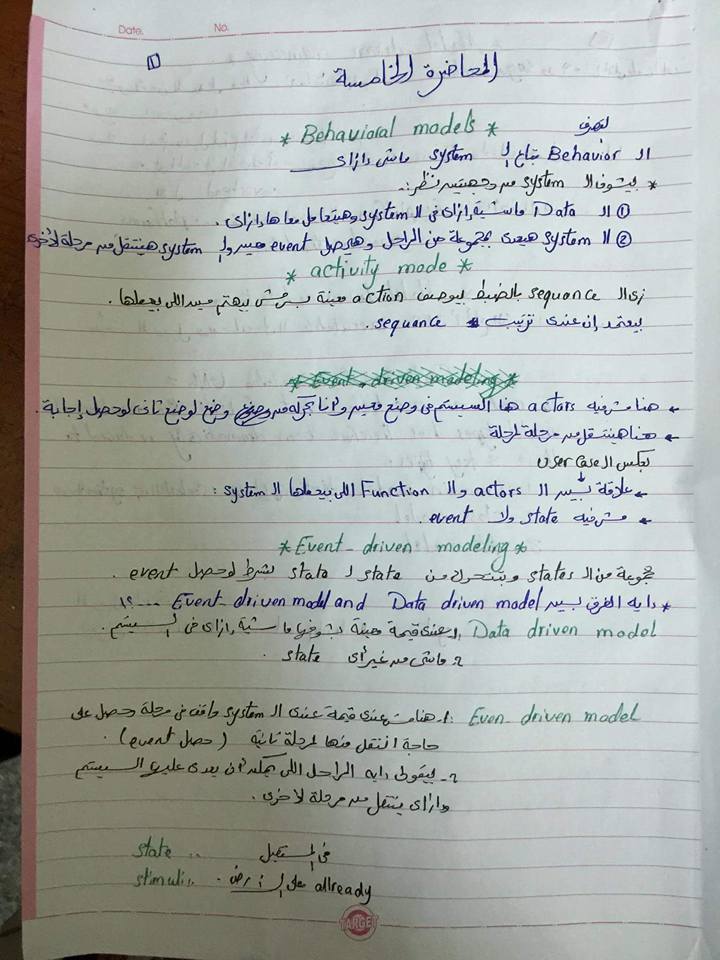 Date. No.
1
المحاضرة الخامسة
* Behavioral models *
لتصرف
ال Behavior بتاع ال system ماشى دازاى
* بيشوف ال system من وجهتين نظر :-
① ال Data ماشية إزاى فى ال system وهيتعامل معاها دازاى .
② ال system هيعدى بمجموعة من المراحل وهيحصل event معين وال system هينتقل من مرحلة لأخرى
* activity mode *
زى ال sequance بالضبط بيوصف action معينة بس مش بيهتم مين اللى بيعملها .
بيعتمد إن عندى ترتيب sequance .
* Event-driven modeling *
← هنا مش فيه actors هنا السيستم فى وضع معين وأنا بحركه من وضع لوضع تانى لو حصل إجابة .
← هنا هينتقل من مرحلة لمرحلة
بعكس ال user case
← علاقة بين ال actors وال Function اللى بيعملها ال system :
← مش فيه state ولا event .
* Event-driven modeling *
مجموعة من ال states وبتتحرك من state ل state بشرط لو حصل event .
* دايه الفرق بين Event-driven model and Data driven model ....؟!
Data driven model عندى قيمة معينة بشوفها ماشية إزاى فى السيستم .
2- ماشى من غير أى state .
Even-driven model : 1- هنا مش عندى قيمة عندى ال system واقف فى مرحلة وحصل على
حاجة انتقل منها لمرحلة تانية (حصل event) .
2- بيقولى دايه المراحل اللى يمكن أن يعدى عليها السيستم
وازاى ينتقل من مرحلة لأخرى .
state .. فى المستقبل
stimuli .. allready على الأرض .
TARGET